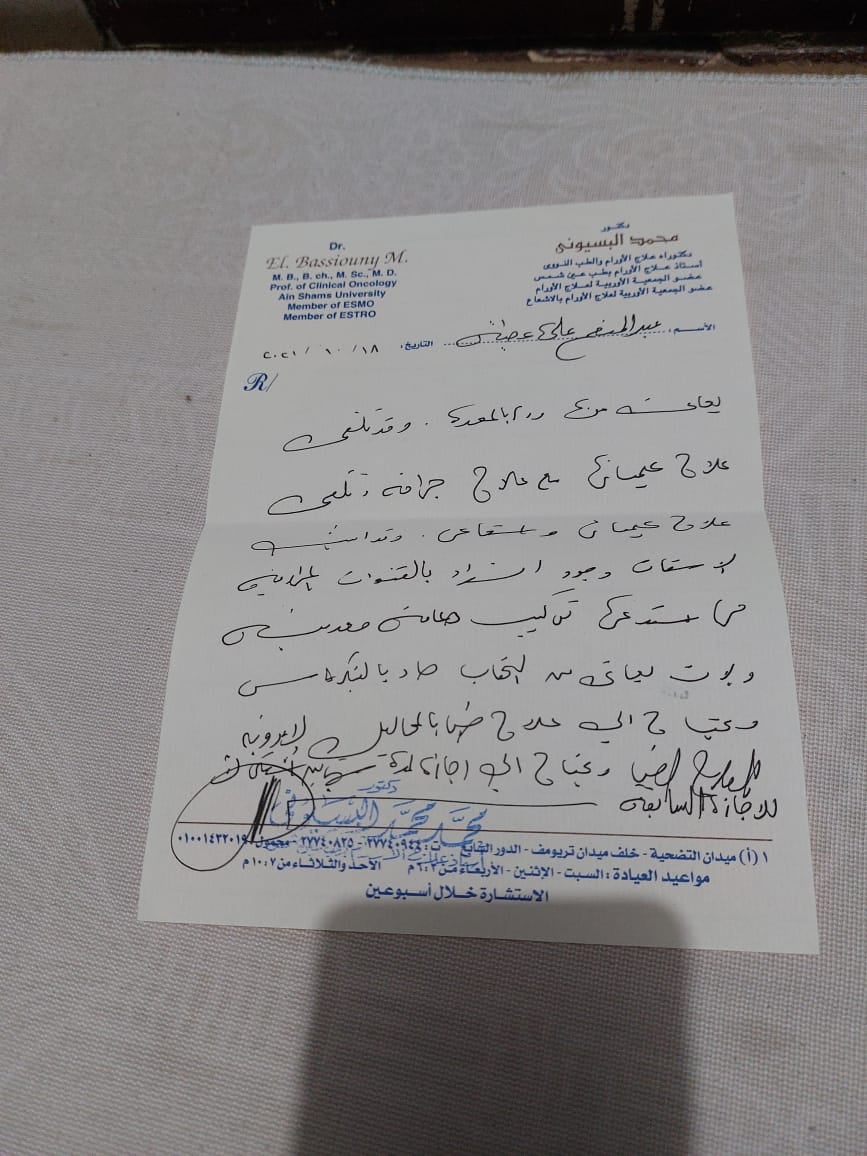 Dr.
El. Bassiouny M.
M. B., B. ch., M. Sc., M. D.
Prof. of Clinical Oncology
Ain Shams University
Member of ESMO
Member of ESTRO
دكتور
محمد البسيونى
دكتوراه علاج الأورام والطب النووى
أستاذ علاج الأورام بطب عين شمس
عضو الجمعية الأوربية لعلاج الأورام
عضو الجمعية الأوربية لعلاج الأورام بالاشعاع
الأسم: عبد المنعم على التاريخ: ٢٠٢١/١٠/١٨
R/
يعانى من ورم بالمعدة. وقد تلقى
علاج كيميائى مع علاج جراحى وتلقى
علاج كيميائى واشعاعى. وقد اثبتت
الاشعات وجود انسداد بالقنوات المرارية
مما استدعى تركيب دعامة معدنية
ويعانى من التهاب حاد بالبنكرياس
ويحتاج الى علاج بالمحاليل الوريدية
ويحتاج الى اجازة لمدة
للاجازة السابقة
دكتور
محمد محمد البسيونى
١ (أ) ميدان التضحية - خلف ميدان تريومف - الدور الرابع ت: ٢٧٧٤٠٩٤٤ - ٢٧٧٤٠٨٢٥ - محمول: ٠١٠٠١٤٣٢٠١٩
مواعيد العيادة: السبت - الإثنين - الأربعاء من الأحد والثلاثاء من ٧ : ١٠ م
الاستشارة خلال أسبوعين